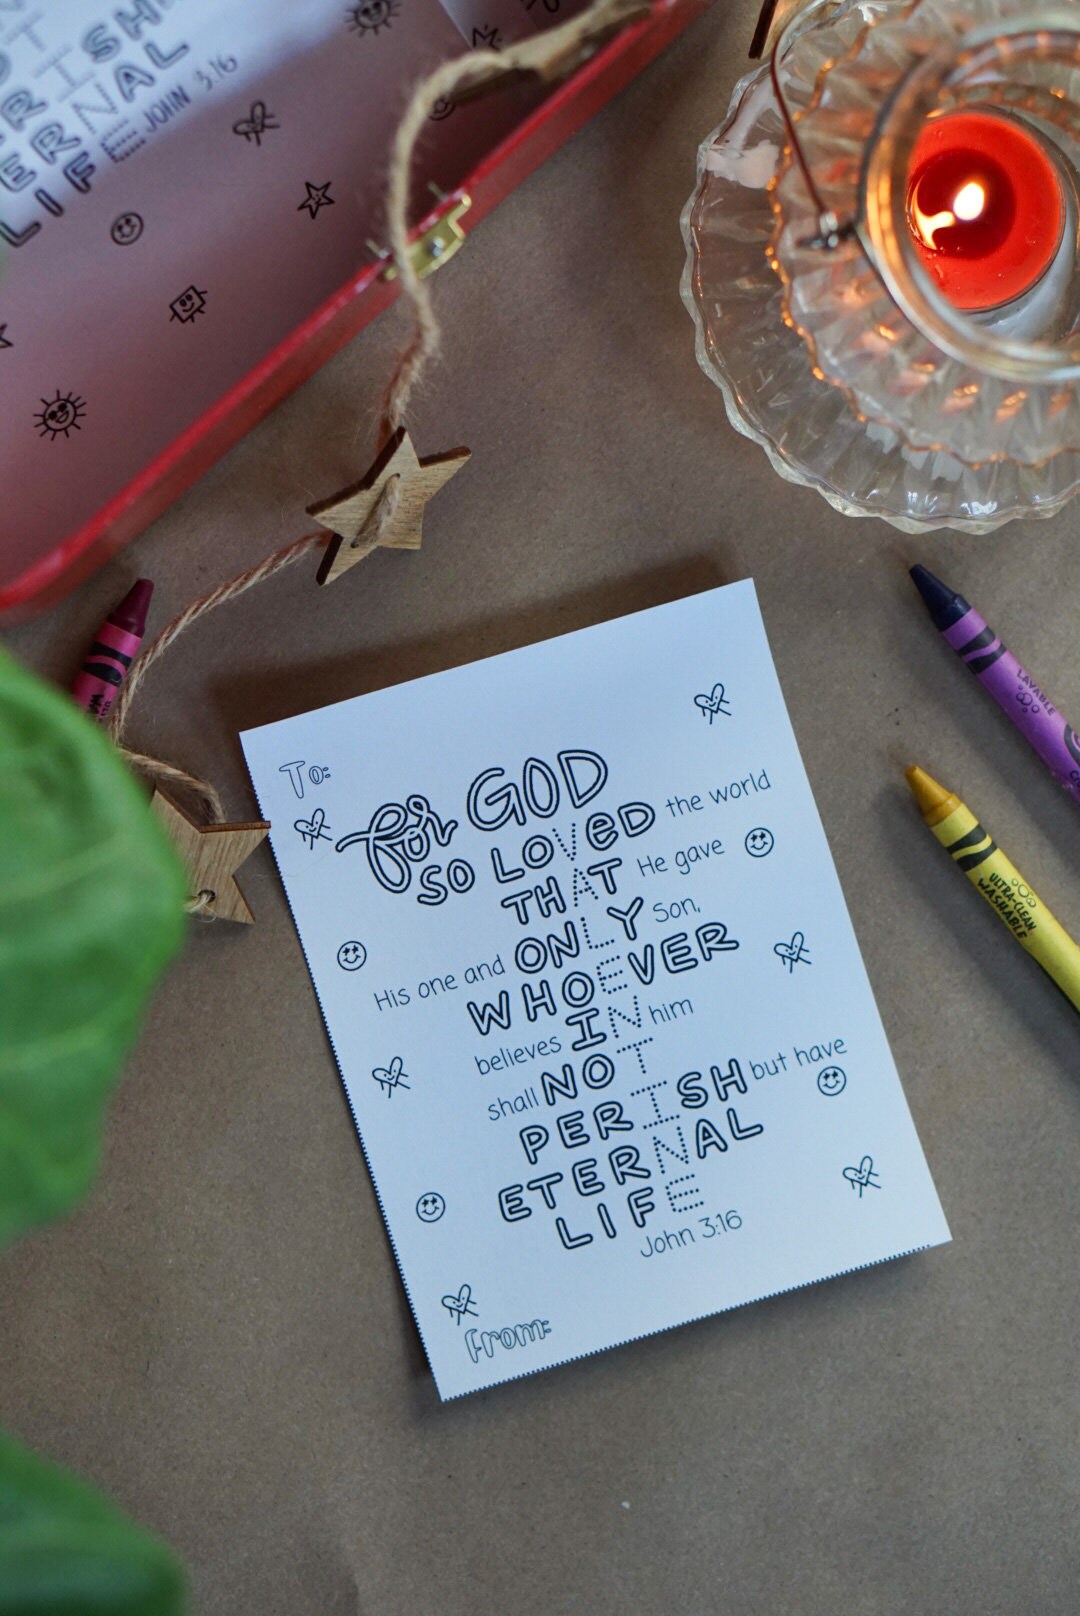 ISH
ERNAL
LIFE
JOHN 3:16
To:
for GOD
SO LOVED the world
THAT He gave
His one and ONLY Son,
WHOEVER
believes IN him
shall NOT
PERISH but have
ETERNAL
LIFE
John 3:16
From:
LAVABLE
ULTRA-CLEAN
WASHABLE